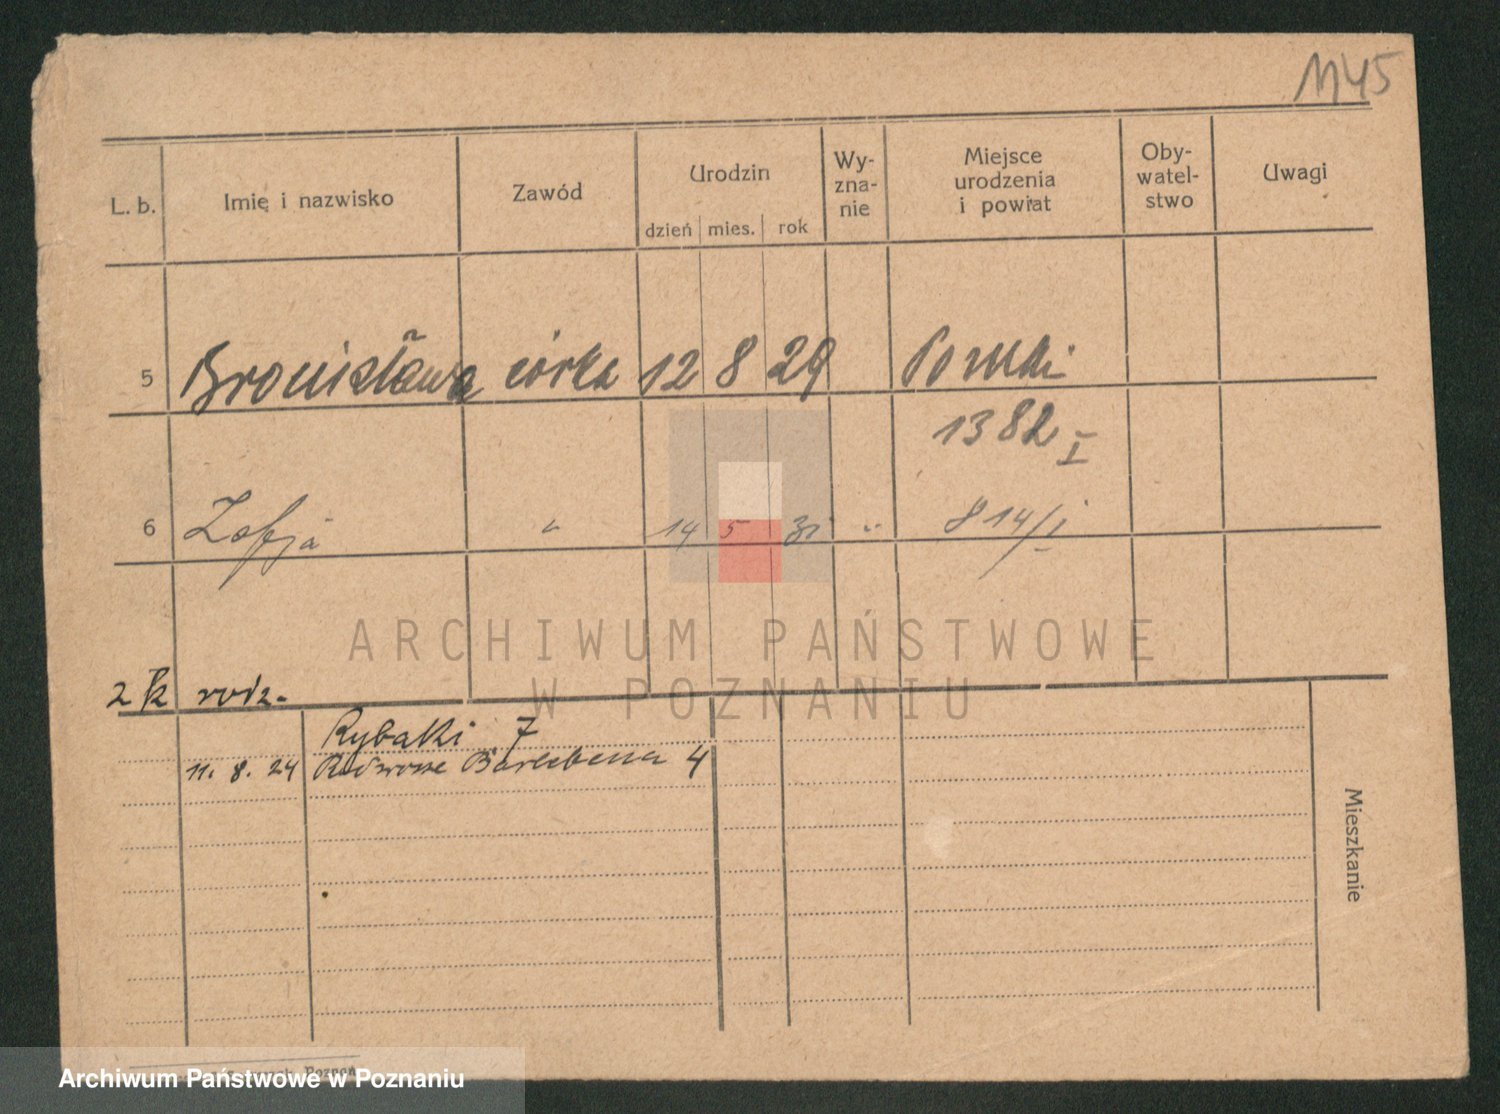 1145
L. b.
Imię i nazwisko
Zawód
Urodzin
dzień mies. rok
Wy-
zna-
nie
Miejsce
urodzenia
i powiat
Oby-
watel-
stwo
Uwagi
5 Bronisława córka 12 8 29
1382 I
6 Zofja " 14 5 31 " 814/I
ARCHIWUM PAŃSTWOWE
W POZNANIU
2 k rodz.
Rybaki 7
11. 8. 24 Barlebena 4
Mieszkanie
Poznań
Archiwum Państwowe w Poznaniu